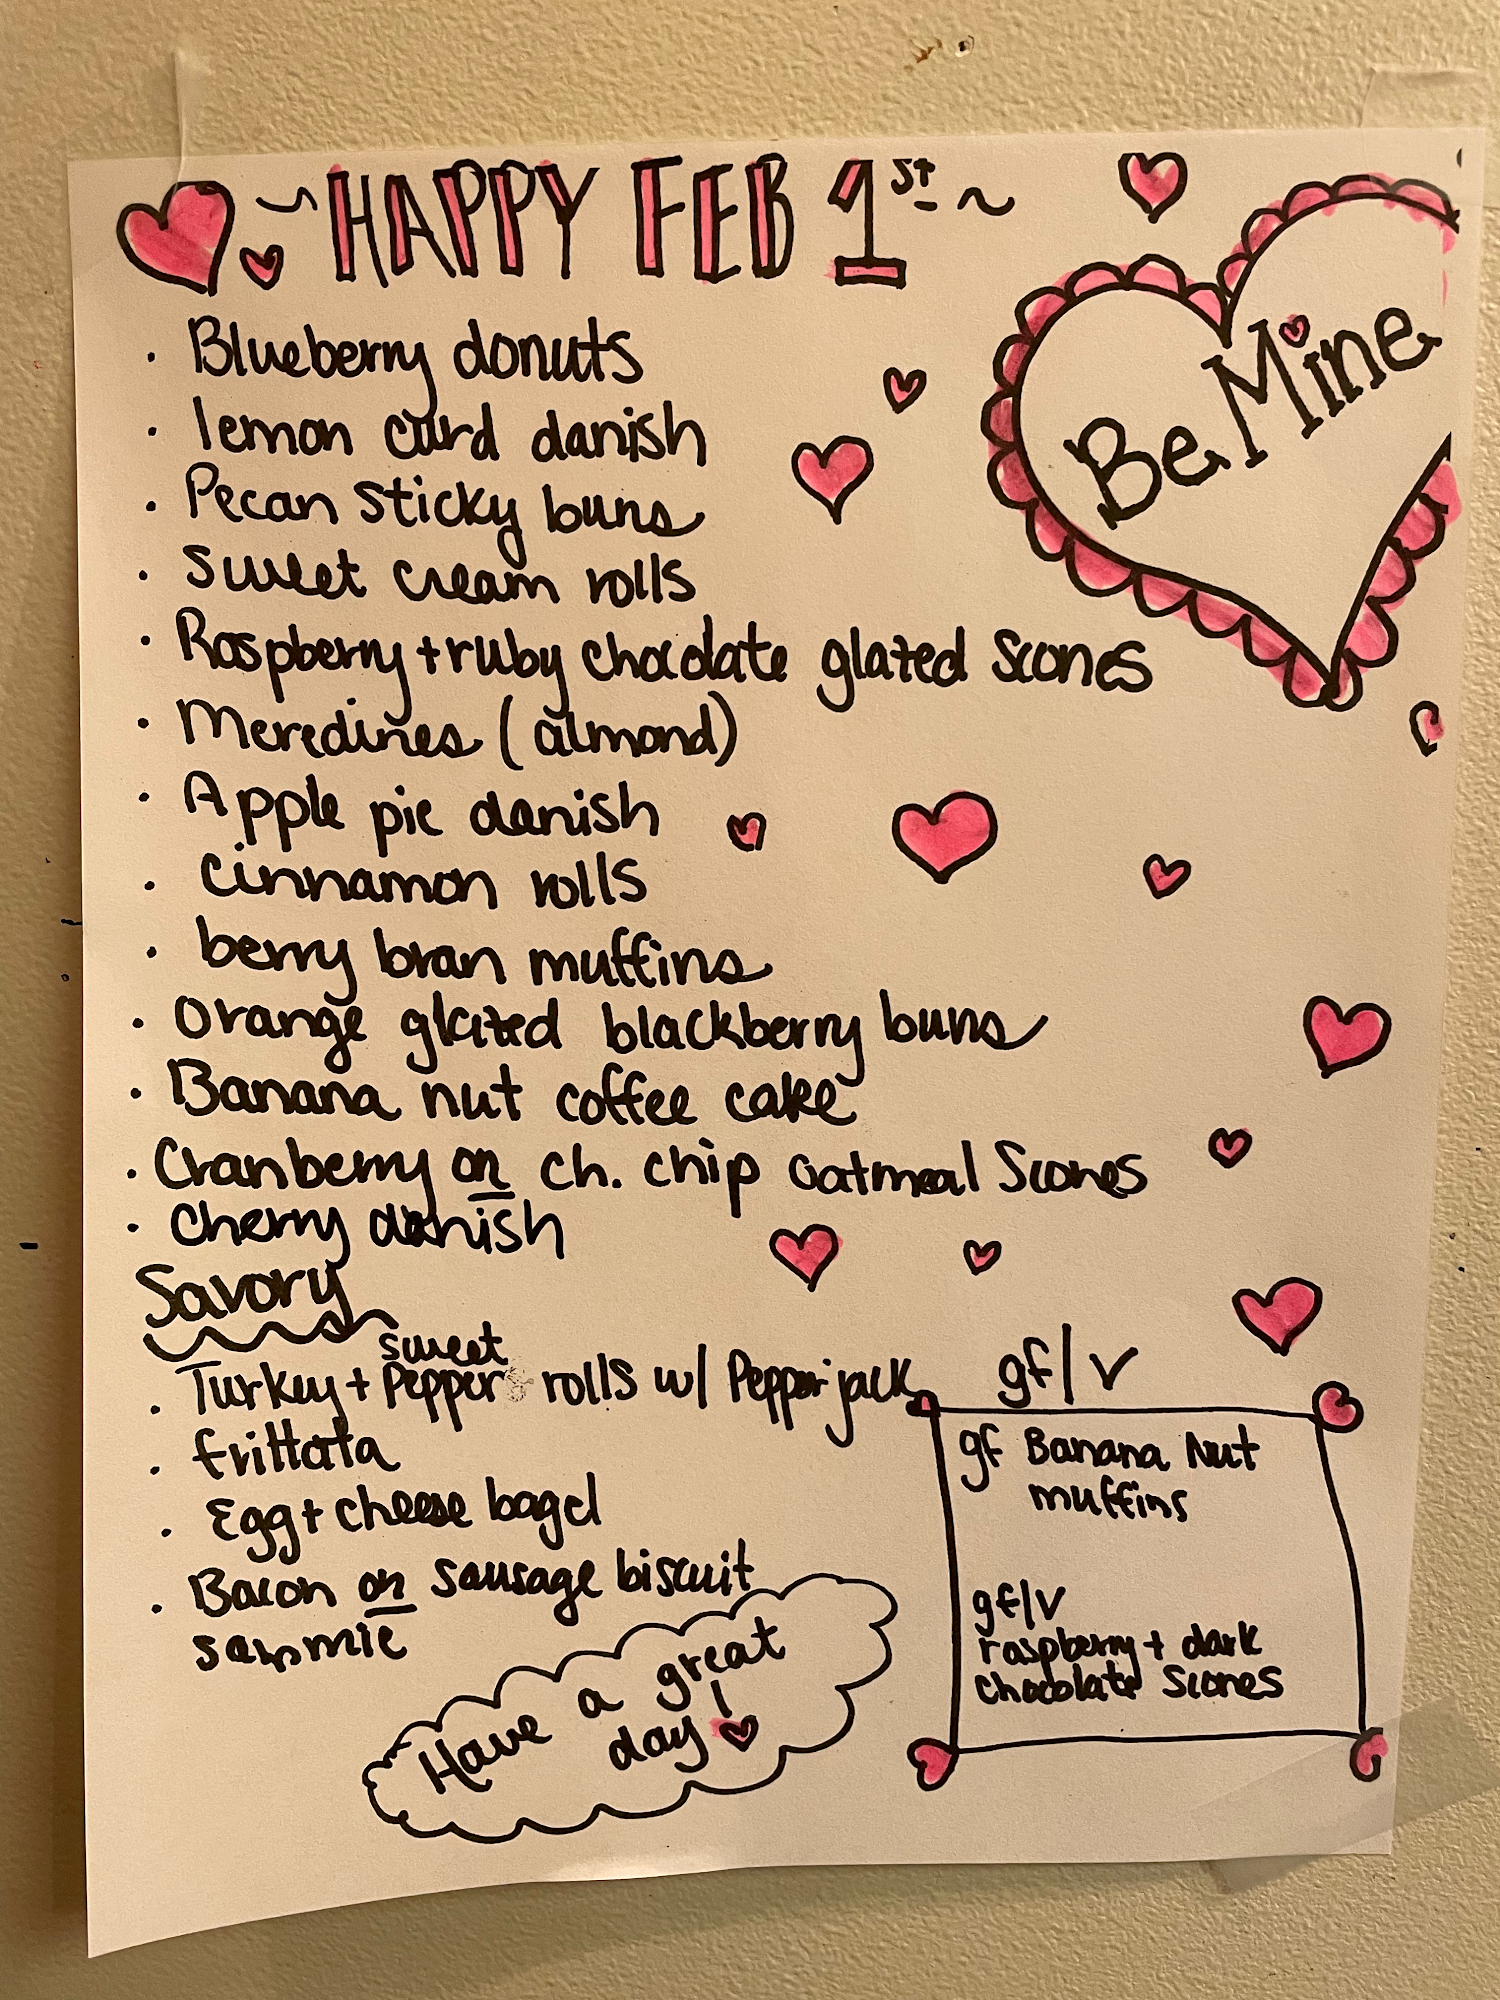 ~HAPPY FEB 1st~
Be Mine
· Blueberry donuts
· lemon curd danish
· Pecan Sticky buns
· sweet cream rolls
· Raspberry + ruby chocolate glazed scones
· Meredines (almond)
· Apple pie danish
· cinnamon rolls
· berry bran muffins
· Orange glazed blackberry buns
· Banana nut coffee cake
· Cranberry or ch. chip oatmeal Scones
· Cherry danish
Savory
· Turkey + sweet Pepper rolls w/ Pepper jack
· frittata
· Egg + cheese bagel
· Bacon or sausage biscuit
sammie
gf/v
gf Banana Nut
muffins
gf/v
raspberry + dark
chocolate scones
Have a great
day!